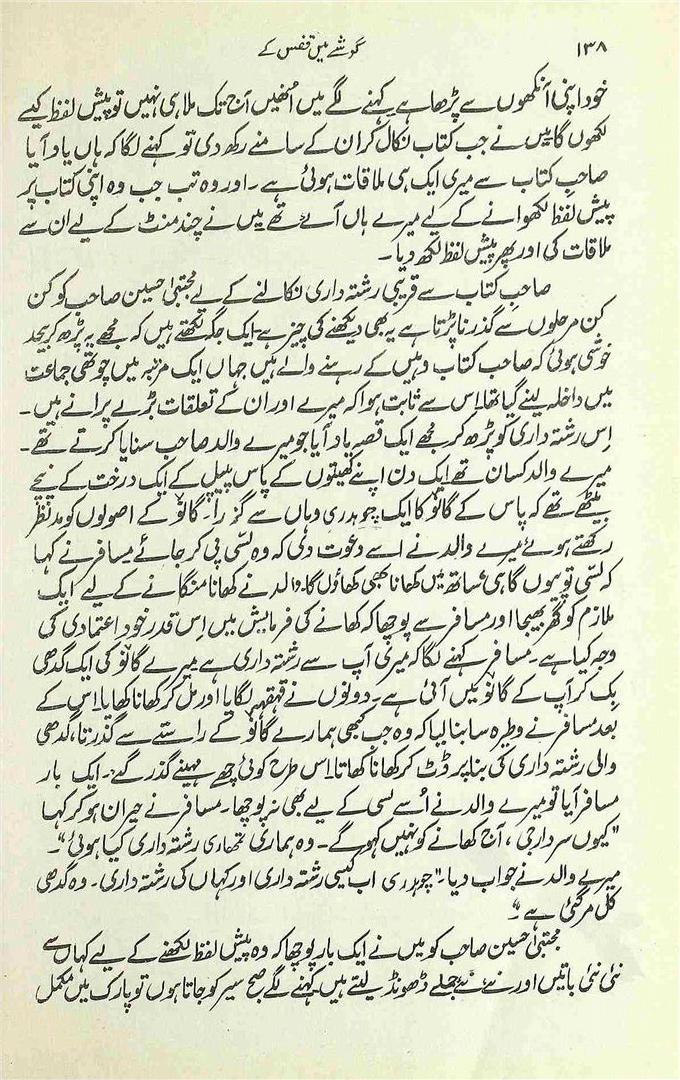 ۱۳۸
گوشے میں قفس کے
خود اپنی آنکھوں سے پڑھا ہے کہنے لگے میں انھیں آج تک ملا ہی نہیں تو پیش لفظ کیسے
لکھوں گا میں نے جب کتاب نکال کر ان کے سامنے رکھ دی تو کہنے لگا کہ ہاں یاد آیا
صاحب کتاب سے میری ایک ہی ملاقات ہوئی ہے ۔ اور وہ تب جب وہ اپنی کتاب پر
پیش لفظ لکھوانے کے لیے میرے ہاں آئے تھے میں نے چند منٹ کے لیے ان سے
ملاقات کی اور پھر پیش لفظ لکھ دیا ۔
صاحب کتاب سے قریبی رشتہ داری نکالنے کے لیے مجتبیٰ حسین صاحب کو کن
کن مرحلوں سے گذرنا پڑتا ہے یہ بھی دیکھنے کی چیز ہے ۔ ایک جگہ لکھتے ہیں کہ مجھے یہ پڑھ کر بیحد
خوشی ہوئی کہ صاحب کتاب وہیں کے رہنے والے ہیں جہاں ایک مرتبہ میں چوتھی جماعت
میں داخلہ لینے گیا تھا۔ اس سے ثابت ہوا کہ میرے اور ان کے تعلقات بڑے پرانے ہیں ۔
اِس رشتہ داری کو پڑھ کر مجھے ایک قصہ یاد آیا جو میرے والد صاحب سنایا کرتے تھے ۔
میرے والد کسان تھے ایک دن اپنے کھیتوں کے پاس پیپل کے ایک درخت کے نیچے
بیٹھے تھے کہ پاس کے گاؤں کا ایک چوہدری وہاں سے گزرا ۔ گاؤں کے اصولوں کو مدنظر
رکھتے ہوئے میرے والد نے اسے دعوت دی کہ وہ لسّی پی کر جائے مسافر نے کہا
کہ لسّی تو پیوں گا ہی ساتھ میں کھانا بھی کھاؤں گا۔ والد نے کھانا منگانے کے لیے ایک
ملازم کو گھر بھیجا اور مسافر سے پوچھا کہ کھانے کی فرمایش میں اِس قدر خود اعتمادی کی
وجہ کیا ہے ۔ مسافر کہنے لگا کہ میری آپ سے رشتہ داری ہے میرے گاؤں کی ایک گدھی
بِک کر آپ کے گاؤں میں آئی ہے ۔ دونوں نے قہقہہ لگایا اور مل کر کھانا کھایا۔ اس کے
بعد مسافر نے وطیرہ سا بنالیا کہ وہ جب کبھی ہمارے گاؤں کے راستے سے گذرتا، گدھی
والی رشتہ داری کی بنا پر ڈٹ کر کھانا کھاتا۔ اس طرح کوئی چھے مہینے گذر گئے ۔ ایک بار
مسافر آیا تو میرے والد نے اُسے لسی کے لیے بھی نہ پوچھا ۔ مسافر نے حیران ہو کر کہا
"کیوں سردار جی ، آج کھانے کو نہیں کہو گے ۔ وہ ہماری تمھاری رشتہ داری کیا ہوئی" ۔
میرے والد نے جواب دیا ۔ "چوہدری اب کیسی رشتہ داری اور کہاں کی رشتہ داری ۔ وہ گدھی
کل مر گئی ہے "۔
مجتبیٰ حسین صاحب کو میں نے ایک بار پوچھا کہ وہ پیش لفظ لکھنے کے لیے کہاں سے
نئی نئی باتیں اور نئے نئے جملے ڈھونڈ لیتے ہیں کہنے لگے صبح سیر کو جاتا ہوں تو پارک میں مکمل